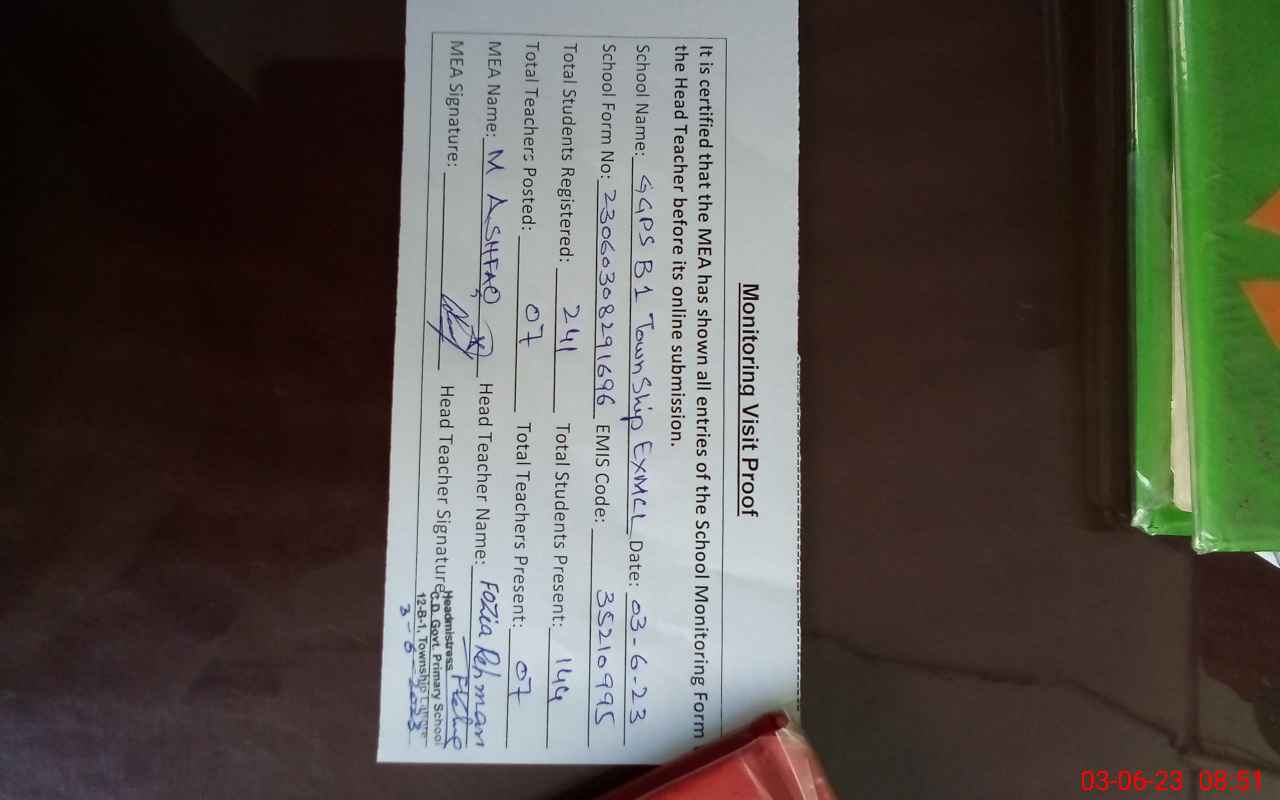 Monitoring Visit Proof
It is certified that the MEA has shown all entries of the School Monitoring Form
the Head Teacher before its online submission.
School Name: GGPS B1 TownShip ExMCL Date: 03-6-23
School Form No: 23060308291696 EMIS Code: 35210995
Total Students Registered: 241 Total Students Present: 144
Total Teachers Posted: 07 Total Teachers Present: 07
MEA Name: M ASHFAQ Head Teacher Name: Fozia Rehman
MEA Signature: Head Teacher Signature
Headmistress
C.D. Govt. Primary School
12-B-1, Township Lahore
3-6-2023
03-06-23 08:51